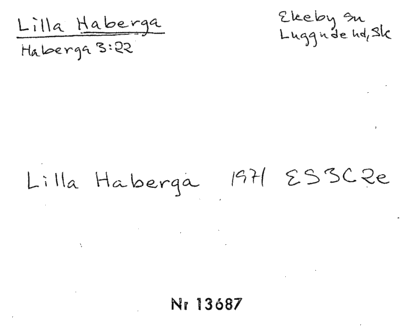 Lilla Haberga
Haberga 3:22
Ekeby sn
Luggude hd, Sk
Lilla Haberga 1971 ES3C2e
Nr 13687